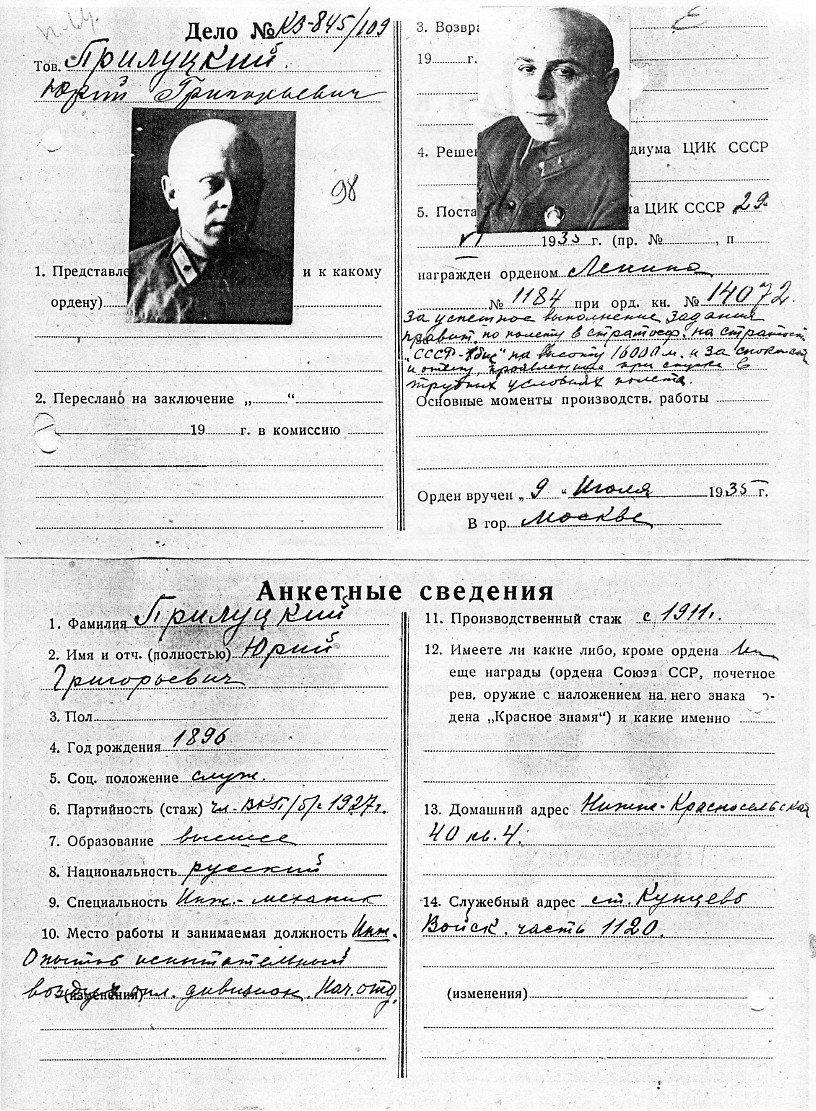 п.14.
Дело № КВ-845/109
Тов. Прилуцкий
Юрий Григорьевич
98
1. Представле и к какому
ордену)
2. Переслано на заключение „ “
19 г. в комиссию
3. Возвра
19 г.
4. Реше диума ЦИК СССР
5. Поста ма ЦИК СССР 29
VI 1935 г. (пр. № , п
награжден орденом Ленина
№ 1184 при орд. кн. № 14072.
за успешное выполнение задания
правит. по полету в стратосф. на стратост
"СССР-1 бис" на высоту 16000 м. и за
и отвагу, проявленные при спуске в
трудных условиях полета.
Основные моменты производств. работы
Орден вручен „9“ Июля 1935 г.
В гор. Москве
Анкетные сведения
1. Фамилия Прилуцкий
2. Имя и отч. (полностью) Юрий
Григорьевич
3. Пол
4. Год рождения 1896
5. Соц. положение служ.
6. Партийность (стаж) чл. ВКП/б/с 1927 г.
7. Образование высшее
8. Национальность русский
9. Специальность Инж.-механик
10. Место работы и занимаемая должность Инж.
Опытно испытательный
(изменения) дивизион. Нач. отд.
11. Производственный стаж с 1911 г.
12. Имеете ли какие либо, кроме ордена
еще награды (ордена Союза ССР, почетное
рев. оружие с наложением на него знака о-
дена „Красное знамя“) и какие именно
13. Домашний адрес Нижне-Красносельская
40 кв. 4.
14. Служебный адрес ст. Кунцево
Войск. часть 1120.
(изменения)